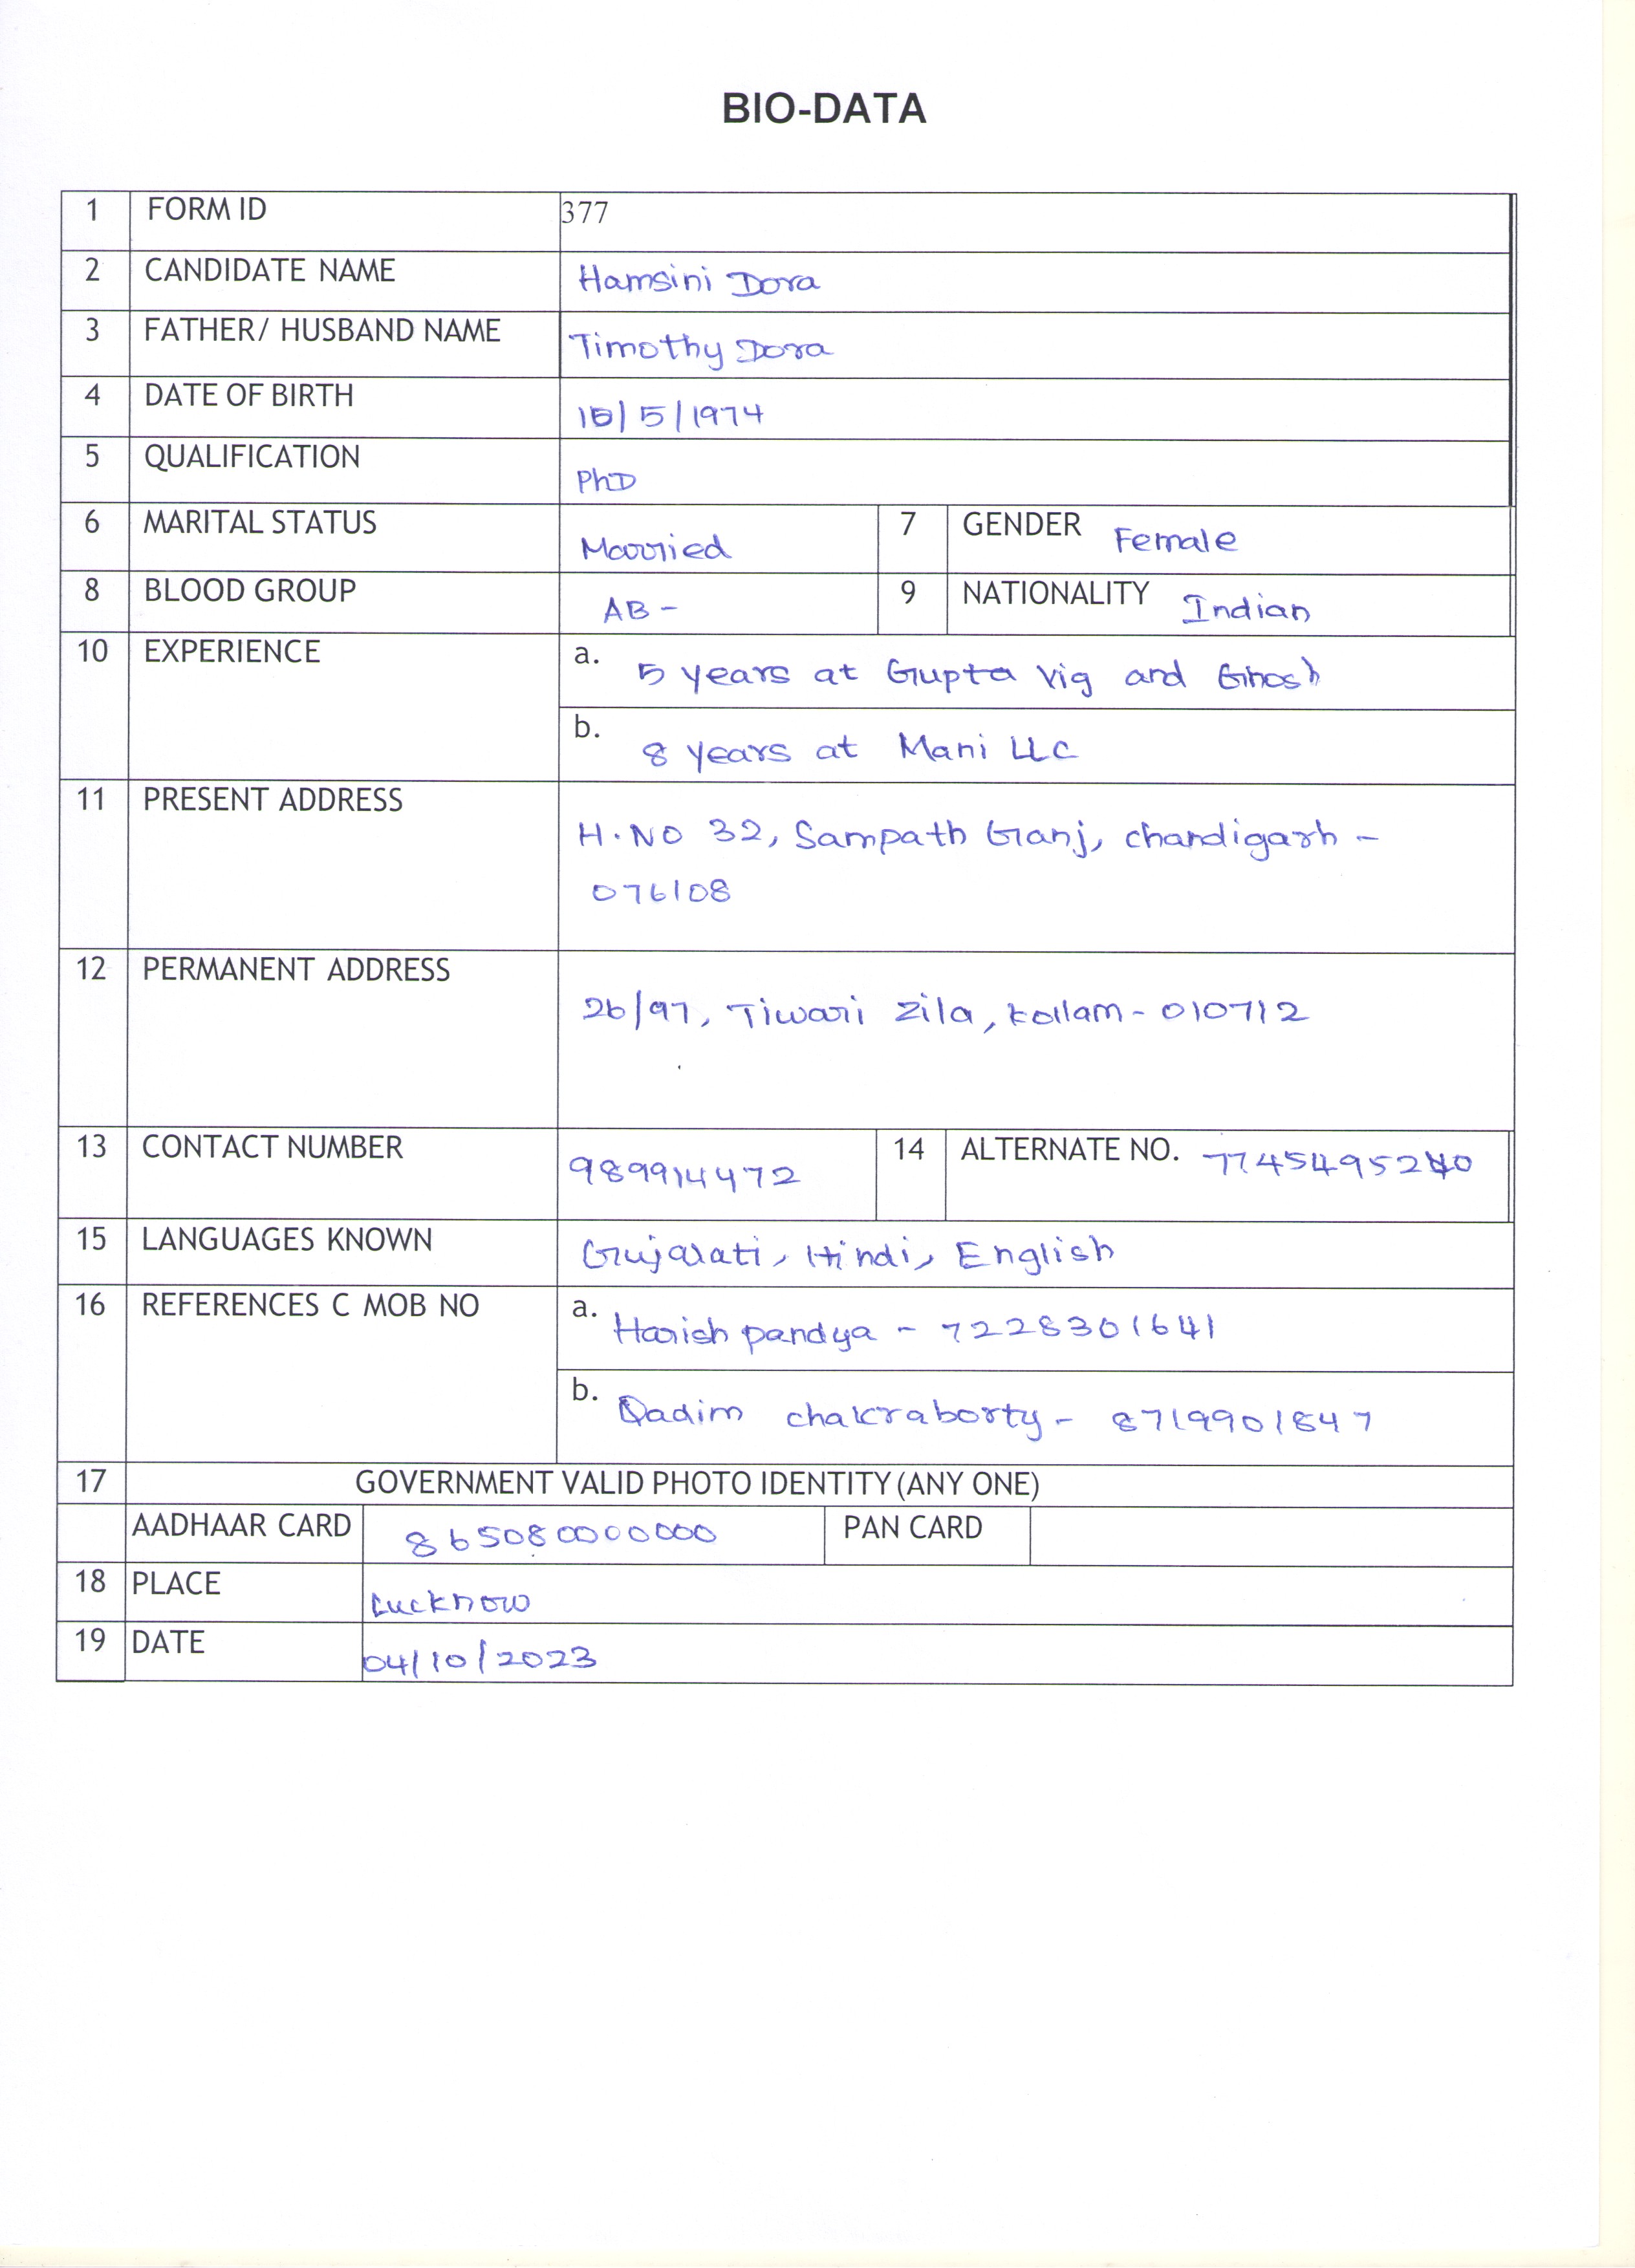 BIO-DATA
1 FORM ID 377
2 CANDIDATE NAME Hamsini Dora
3 FATHER/ HUSBAND NAME Timothy Dora
4 DATE OF BIRTH
5 QUALIFICATION PhD
6 MARITAL STATUS Married 7 GENDER Female
8 BLOOD GROUP AB - 9 NATIONALITY Indian
10 EXPERIENCE a. 5 years at Gupta Vig and Ghosh
b. 8 years at Mani LLC
11 PRESENT ADDRESS H.NO 32, Sampath Ganj, chandigarh -
076108
12 PERMANENT ADDRESS 26/97, Tiwari Zila, kollam - 010712
13 CONTACT NUMBER 989914472 14 ALTERNATE NO.
15 LANGUAGES KNOWN Gujarati, Hindi, English
16 REFERENCES C MOB NO a. Harish pandya - 7228301641
b. Qadim chakraborty - 8719901847
17 GOVERNMENT VALID PHOTO IDENTITY (ANY ONE)
AADHAAR CARD 865080000000 PAN CARD
18 PLACE Lucknow
19 DATE 04/10/2023